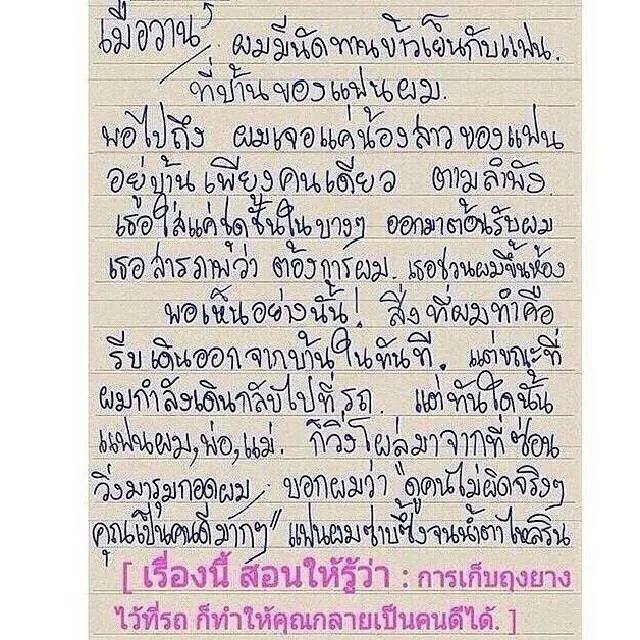 เมื่อวาน ผมมีนัดทานข้าวเย็นกับแฟน.
ที่บ้านของแฟนผม.
พอไปถึง ผมเจอแค่น้องสาวของแฟน
อยู่บ้านเพียงคนเดียว ตามลำพัง.
เธอใส่แค่ชุดชั้นในบางๆ ออกมาต้อนรับผม
เธอสารภาพว่า ต้องการผม. เธอชวนผมขึ้นห้อง
พอเห็นอย่างนั้น! สิ่งที่ผมทำคือ
รีบเดินออกจากบ้านในทันที. แต่ขณะที่
ผมกำลังเดินกลับไปที่รถ. แต่ทันใดนั้น
แฟนผม, พ่อ, แม่. ก็วิ่งโผล่มาจากที่ซ่อน
วิ่งมารุมกอดผม บอกผมว่า "ดูคนไม่ผิดจริงๆ
คุณเป็นคนดีมากๆ" แฟนผมซาบซึ้งจนน้ำตาไหลริน
[ เรื่องนี้ สอนให้รู้ว่า : การเก็บถุงยาง
ไว้ที่รถ ก็ทำให้คุณกลายเป็นคนดีได้. ]